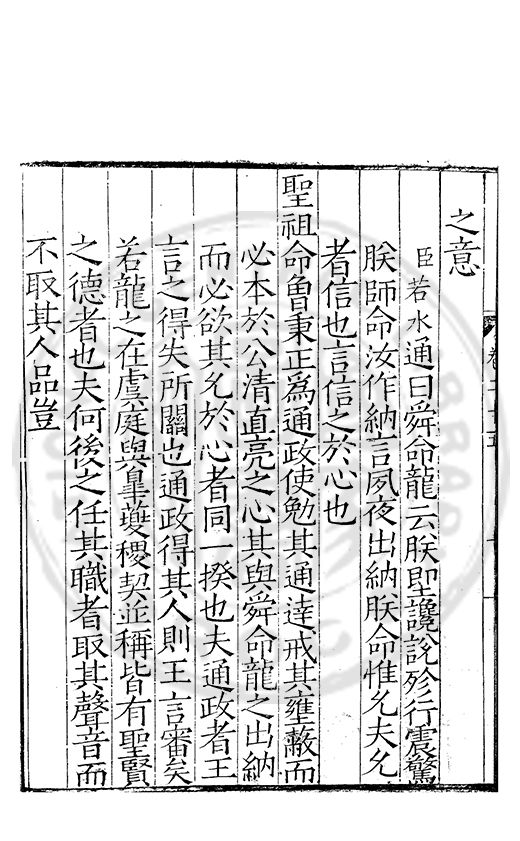 之意
臣若水通曰舜命龍云朕堲讒說殄行震驚
朕師命汝作納言夙夜出納朕命惟允夫允
者信也言信之於心也
聖祖命魯秉正爲通政使勉其通達戒其壅蔽而
必本於公清直亮之心其與舜命龍之出納
而必欲其允於心者同一揆也夫通政者王
言之得失所關也通政得其人則王言審矣
若龍之在虞庭與臯夔稷契並稱皆有聖賢
之德者也夫何後之任其職者取其聲音而
不取其人品豈